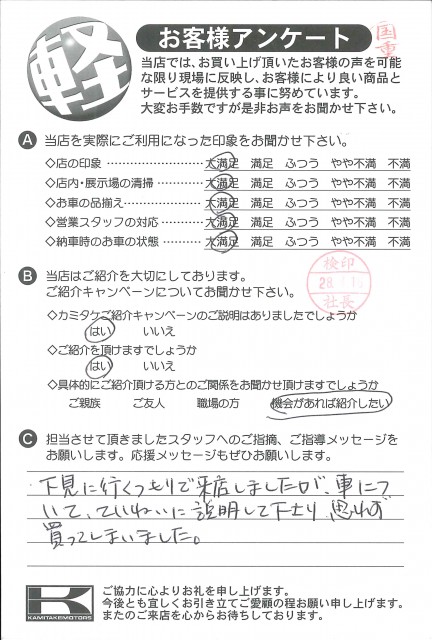 軽
お客様アンケート
国重
当店では、お買い上げ頂いたお客様の声を可能
な限り現場に反映し、お客様により良い商品と
サービスを提供する事に努めています。
大変お手数ですが是非お声をお聞かせ下さい。
A 当店を実際にご利用になった印象をお聞かせ下さい。
◇店の印象 大満足 満足 ふつう やや不満 不満
◇店内・展示場の清掃 大満足 満足 ふつう やや不満 不満
◇お車の品揃え 大満足 満足 ふつう やや不満 不満
◇営業スタッフの対応 大満足 満足 ふつう やや不満 不満
◇納車時のお車の状態 大満足 満足 ふつう やや不満 不満
B 当店はご紹介を大切にしております。
ご紹介キャンペーンについてお聞かせ下さい。
検印
28
社長
◇カミタケご紹介キャンペーンのご説明はありましたでしょうか
はい いいえ
◇ご紹介を頂けますでしょうか
はい いいえ
◇具体的にご紹介頂ける方とのご関係をお聞かせ頂けますでしょうか
ご親族 ご友人 職場の方 機会があれば紹介したい
C 担当させて頂きましたスタッフへのご指摘、ご指導メッセージを
お願いします。応援メッセージもぜひお願いします。
下見に行くつもりで来店しましたが、車につ
いて、ていねいに説明して下さり、思わず
買ってしまいました。
K
KAMITAKEMOTORS
ご協力に心よりお礼を申し上げます。
今後とも宜しくお引き立てご愛顧の程お願い申し上げます。
またのご来店を心からお待ちしております。